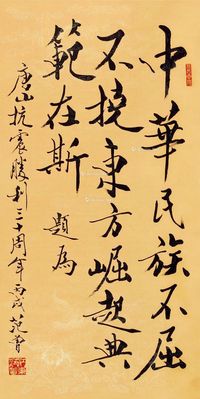 中華民族不屈
不撓東方崛起典
範在斯
題為
唐山抗震勝利三十周年丙戌范曾